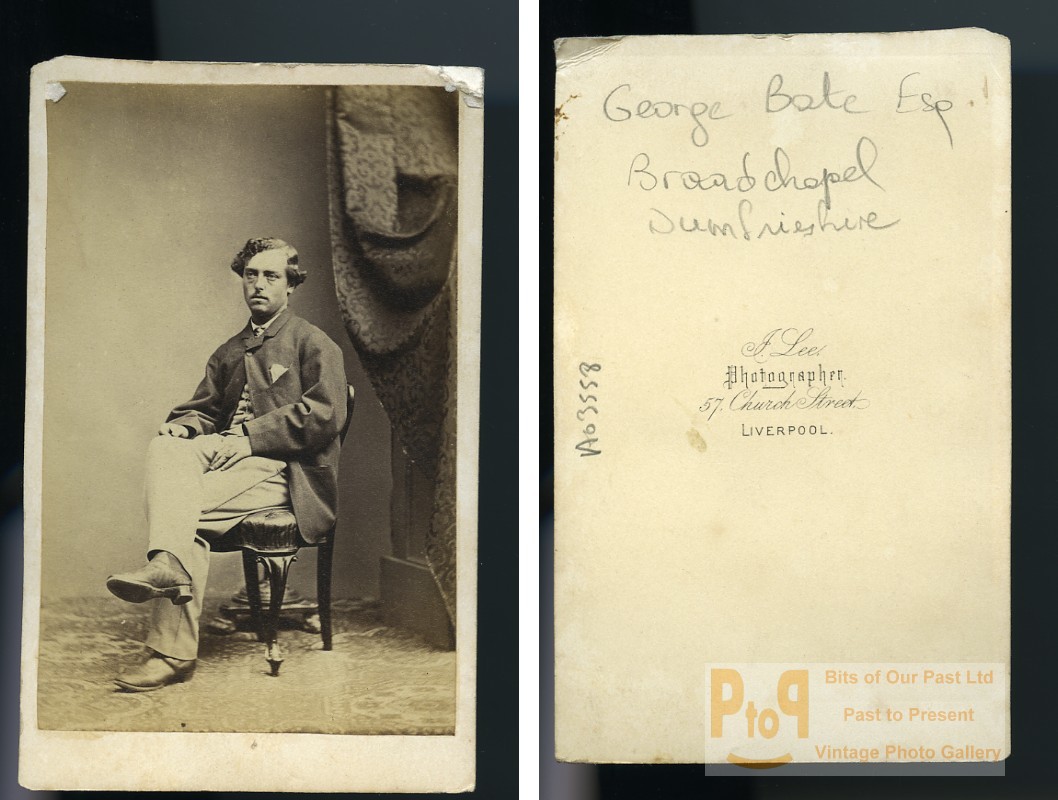 George Bate Esq.
Broadchapel
Dumfrieshire
J. Lee.
Photographer.
57. Church Street
LIVERPOOL.
A63558
PtoP
Bits of Our Past Ltd
Past to Present
Vintage Photo Gallery